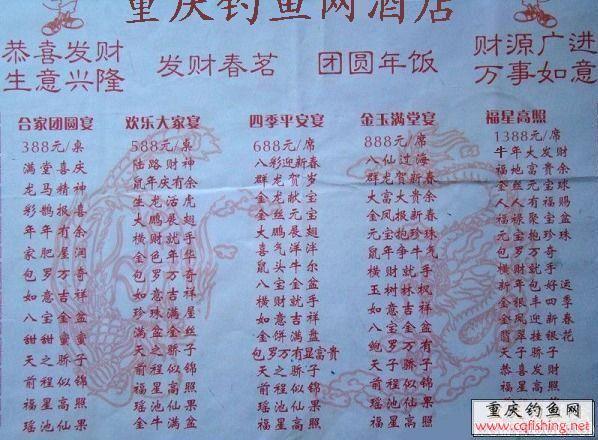 重庆钓鱼网酒店
恭喜发财
生意兴隆
发财春茗
团圆年饭
财源广进
万事如意
合家团圆宴
388元/桌
满堂喜庆
龙马精神
彩鹊报喜
年年有余
家肥屋润
包罗万奇
如意吉祥
八宝金盆
甜甜蜜蜜
天之骄子
前程似锦
福星高照
瑶池仙果
欢乐大家宴
588元/桌
陆路财神
鼠年庆有余
生龙活虎
大鹏展翅
横财就手
金色年华
包罗万奇
如意吉祥
珍珠满屋
满盆金丝
天之骄子
前程似锦
福星高照
瑶池仙果
金牛满盆
四季平安宴
688元/席
八彩迎新春
群龙贺岁
金龙献宝
金丝元宝
大鹏展翅
喜气洋洋
鼠头牛尔
八宝金盆
横财就手
如意吉祥
金饼满盘
包罗万有显富贵
天之骄子
前程似锦
福星高照
瑶池仙果
金玉满堂宴
888元/席
八仙过海
群龙贺新春
大富大贵余
金凤报新春
元宝抱珍珠
鼠年争牛气
横财就手
玉树林枫
如意吉祥
八宝金盆
鲍罗万有
天之骄子
前程似锦
福星高照
瑶池仙果
福星高照
1388元/席
牛年大发财
福地富贵余
金丝元宝球
人人有福赐
福禄聚宝盆
元宝抱珍珠
包罗万奇
横财就手
新年包好运
金银丰四季
金盆迎新春
翡翠挂银花
天子骄子
恭喜发财
福星高照
重庆钓鱼网
www.cqfishing.net